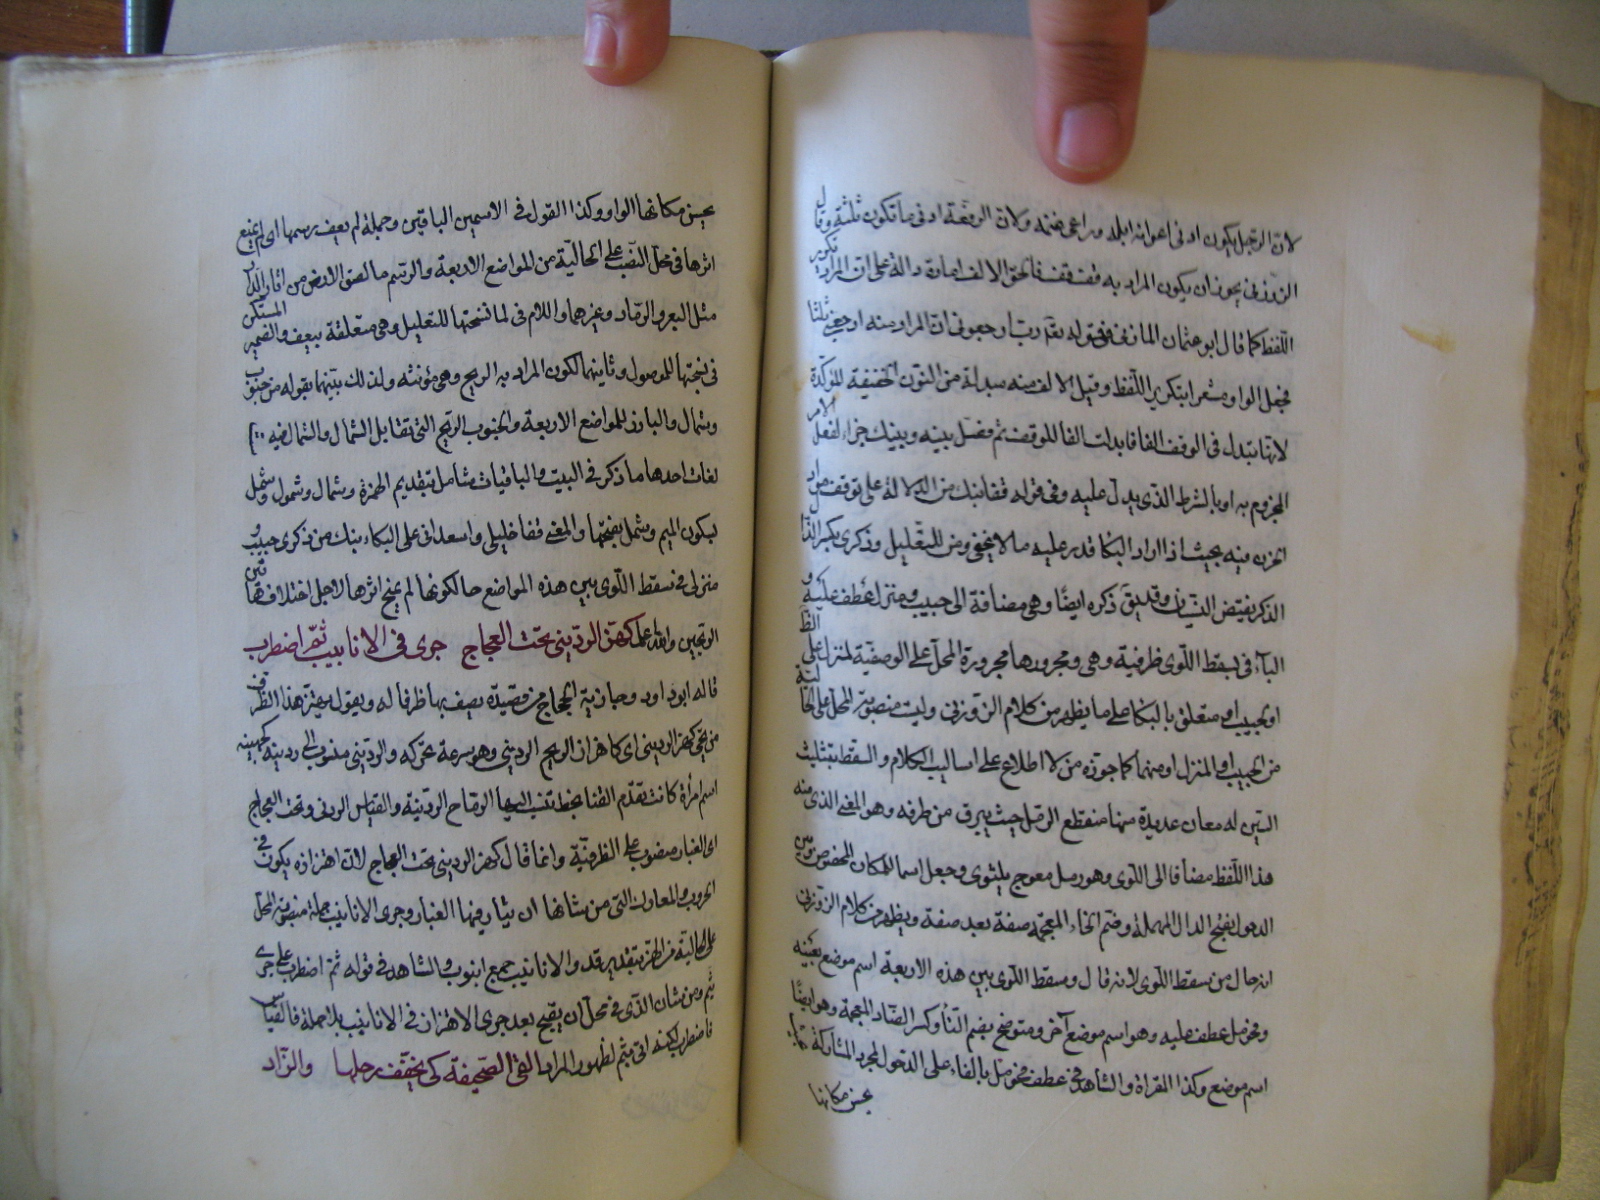 لان الرجل يكون ادنى اعوانه ابله وراعى غنمه ولان الرفقة ادنى ما تكون ثلثة وقال
الزوزنى يجوز ان يكون المراد به قف قف فالحق الالف امارة دالة على ان المراد تكرير
اللفظ كما قال ابو عثمان المازنى فى قوله رب ارجعونى ان المراد منه ارجعنى ثلثا
فجعل الواو مشعرا بتكرير اللفظ وقيل الالف منه مبدلة من النون الخفيفة للمؤكدة
لانها تبدل فى الوقف الفا فابدلت الفا للوقف ثم فصل بينه وبينك جزاء لفعل الامر
المجزوم به او بالشرط الذى يدل عليه وفى قوله قفا نبك من الدلالة على توقف مراد
الحزن فيه بحيث اذا اراد البكا قدر عليه ما لا يخفى ومن للتعليل وذكرى بكسر الذال
الذكر نقيض النسيان وقد سبق ذكره ايضا وهى مضافة الى حبيب ومنزل عطف عليه و
الباء فى بسقط اللوى ظرفية وهى ومجرورها مجرورة المحل على الوصفية لمنزل على الظ
او لحبيب او متعلق بالبكا على ما يظهر من كلام الزوزنى وليست منصوبة المحل على الحالية
من الحبيب او المنزل او منهما كما جوزه من لا اطلاع على اساليب الكلام والسقط بتثليث
السين له معان عديدة منها منقطع الرمل حيث يرق من طرفه وهو المعنى الذى منه
هذا اللفظ مضافا الى اللوى وهو رمل معوج يلتوى وجعل اسما للمكان المخصوص
الدخول بفتح الدال المهملة وضم الخاء المعجمة صفة بعد صفة ويظهر من كلام الزوزنى
انه حال من سقط اللوى لانه قال وسقط اللوى بين هذه الاربعة اسم موضع بعينه
وحومل عطف عليه وهو اسم موضع آخر وتوضح بضم التاء وكسر الضاد المعجمة وهو ايضا
اسم موضع وكذا المقراة والشاهد فى عطف حومل بالفاء على الدخول لمجرد المشاركة
يحسن مكانها
يحسن مكانها الواو وكذا القول فى الاسمين الباقيين وجملة لم يعف رسمها اى لم يمنع
اثرها فى محل النصب على الحالية من المواضع الاربعة والرسم ما لصق الارض من اثار الدار
مثل البعر والرماد وغيرهما واللام فى لما نسجتها للتعليل وهى متعلقة بيعف والضمير المستكن
فى نسجتها للموصول وتانيثها لكون المراد به الريح وهى مؤنثة ولذلك بينها بقوله من جنوب
وشمال والبارز للمواضع الاربعة والجنوب الريح التى تقابل الشمال والشمال فيه
لغات احدها ما ذكر فى البيت والباقيات شامل بتقديم الهمزة وشمال وشمول وشمل
بسكون الميم وشمل بفتحها والمعنى قفا خليلى واسعدانى على البكاء نبك من ذكرى حبيب و
منزلى فى سقط اللوى بين هذه المواضع حالكونها لم يمح اثرها لاجل اختلاف هاتين
الريحين والله اعلم كهز الردينى تحت العجاج جرى فى الانابيب ثم اضطرب
قاله ابو داود وجارية الحجاج من قصيدة يصف بها ظرفا له ويقول يهتز هذا الظرف
كهز الردينى اى كاهتزاز الرمح الردينى وهو سرعة تحركه والردينى منسوب الى ردينة كجهينة
اسم امرأة كانت تقوم القنا بخط تنسب اليها الرماح الردينية والقياس الردنى وتحت العجاج
اى الغبار منصوب على الظرفية وانما قال كهز الردينى تحت العجاج لان اهتزازه يكون فى
الحروب والمعارك التى من شانها ان يثار فيها الغبار وجرى الانابيب جملة منصوبة المحل
على الحالية من الهز بتقدير قد والانابيب جمع انبوب والشاهد فى قوله ثم اضطرب على جرى
بثم ومن شان الذى فى محل ان يقبح بعد جرى الاهتزاز فى الانابيب بلا جملة فالقياس
فاضطرب لكنه اتى بثم لظهور المراد القى الصحيفة كى يخفف رحلها والزاد